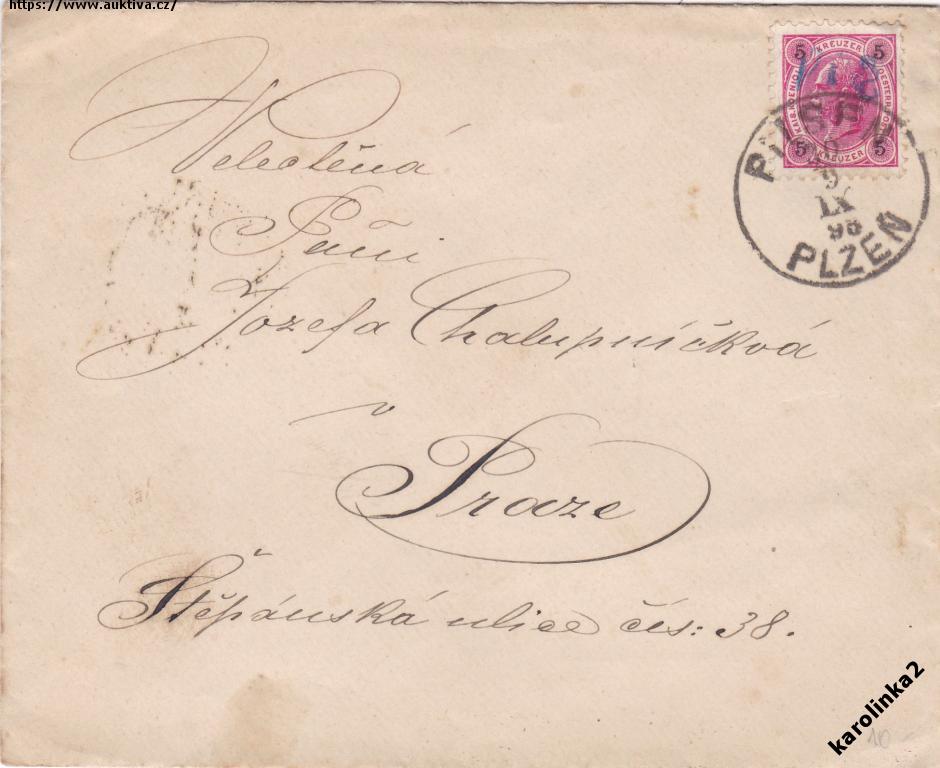 https://www.auktiva.cz/
5 KREUZER 5
KAIS. KOENIGL. OESTERR. POST
5 KREUZER 5
PILSEN
9
IX
PLZEŇ
Velectěná
Paní
Jozefa Chalupníčková
v
Praze
Štěpánská ulice čís: 38.
karolinka2
10